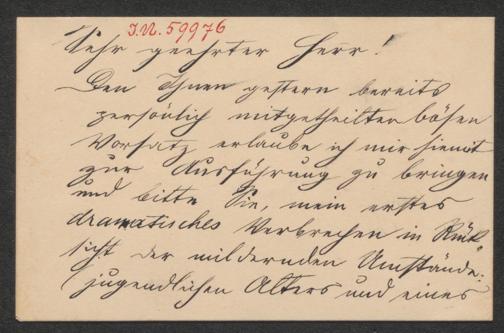 I.N. 59976
Sehr geehrter Herr!
Den Ihnen gestern bereits
persönlich mitgetheilten bösen
Vorsatz erlaube ich mir hiemit
zur Ausführung zu bringen
und bitte Sie, mein erstes
dramatisches Verbrechen in Rück-
sicht der mildernden Umstände:
jugendlichen Alters und eines